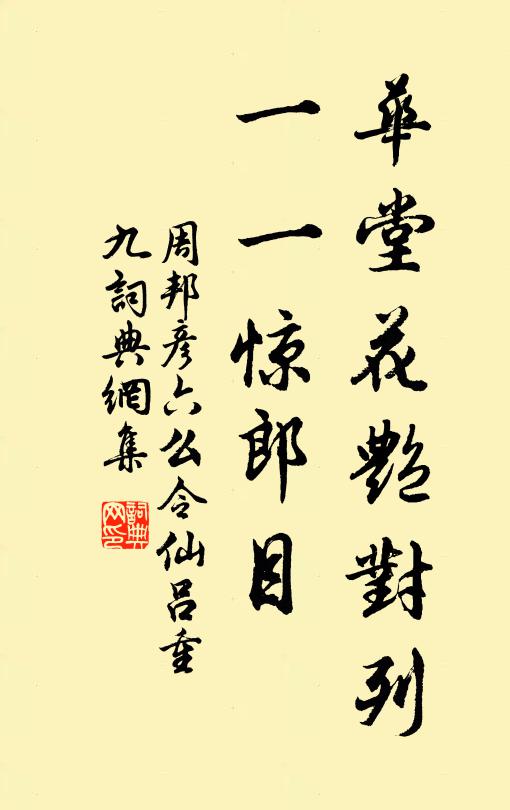 華堂花艶對列
一一惊郎目
周邦彦六么令仙呂重
九詞典網集
詞典网印